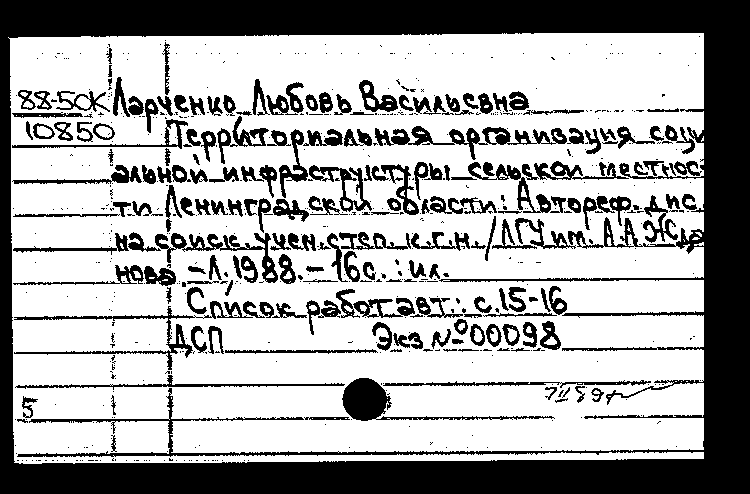 88-50К Ларченко, Любовь Васильевна
10850 Территориальная организация соци
альной инфраструктуры сельской местнос
ти Ленинградской области: Автореф. дис.
на соиск. учен. степ. к.г.н. / ЛГУ им. А.А. Жда
нова. - Л. 1988. - 16с. : ил.
Список работ авт.: с. 15-16
ДСП Экз № 00098
5